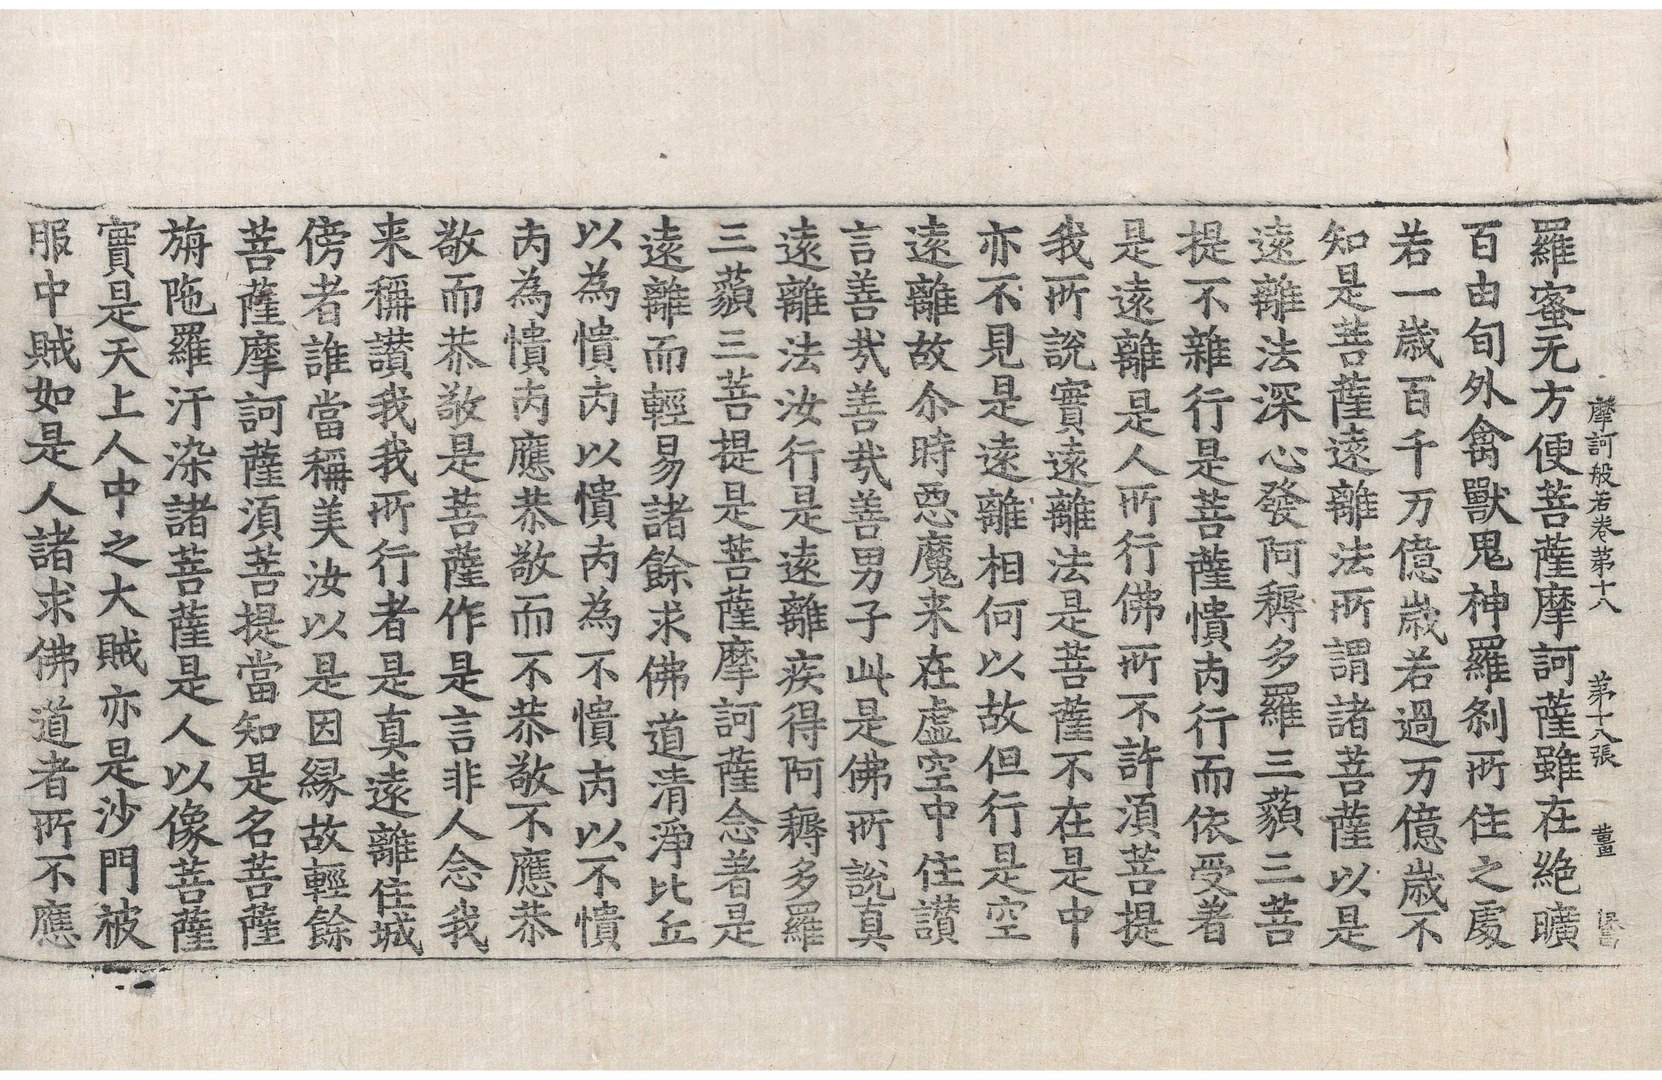 摩訶般若卷苐十八　苐十八張　畫
羅蜜无方便菩薩摩訶薩雖在絶曠
百由旬外禽獸鬼神羅刹所住之處
若一歳百千万億歳若過万億歳不
知是菩薩遠離法所謂諸菩薩以是
遠離法深心發阿耨多羅三藐三菩
提不雜行是菩薩憒丙行而依受著
是遠離是人所行佛所不許須菩提
我所說實遠離法是菩薩不在是中
亦不見是遠離相何以故但行是空
遠離故尒時惡魔来在虚空中住讃
言善㢤善㢤善男子此是佛所說真
遠離法汝行是遠離疾得阿耨多羅
三藐三菩提是菩薩摩訶薩念著是
遠離而輕易諸餘求佛道清淨比丘
以為憒丙以憒丙為不憒丙以不憒
丙為憒丙應恭敬而不恭敬不應恭
敬而恭敬是菩薩作是言非人念我
来稱讃我我所行者是真遠離住城
傍者誰當稱美汝以是因縁故輕餘
菩薩摩訶薩須菩提當知是名菩薩
旃陁羅汙染諸菩薩是人以像菩薩
實是天上人中之大賊亦是沙門被
服中賊如是人諸求佛道者所不應